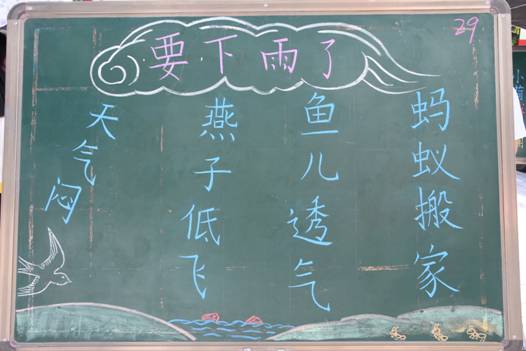 要下雨了
29
蚂蚁搬家
鱼儿透气
燕子低飞
天气闷